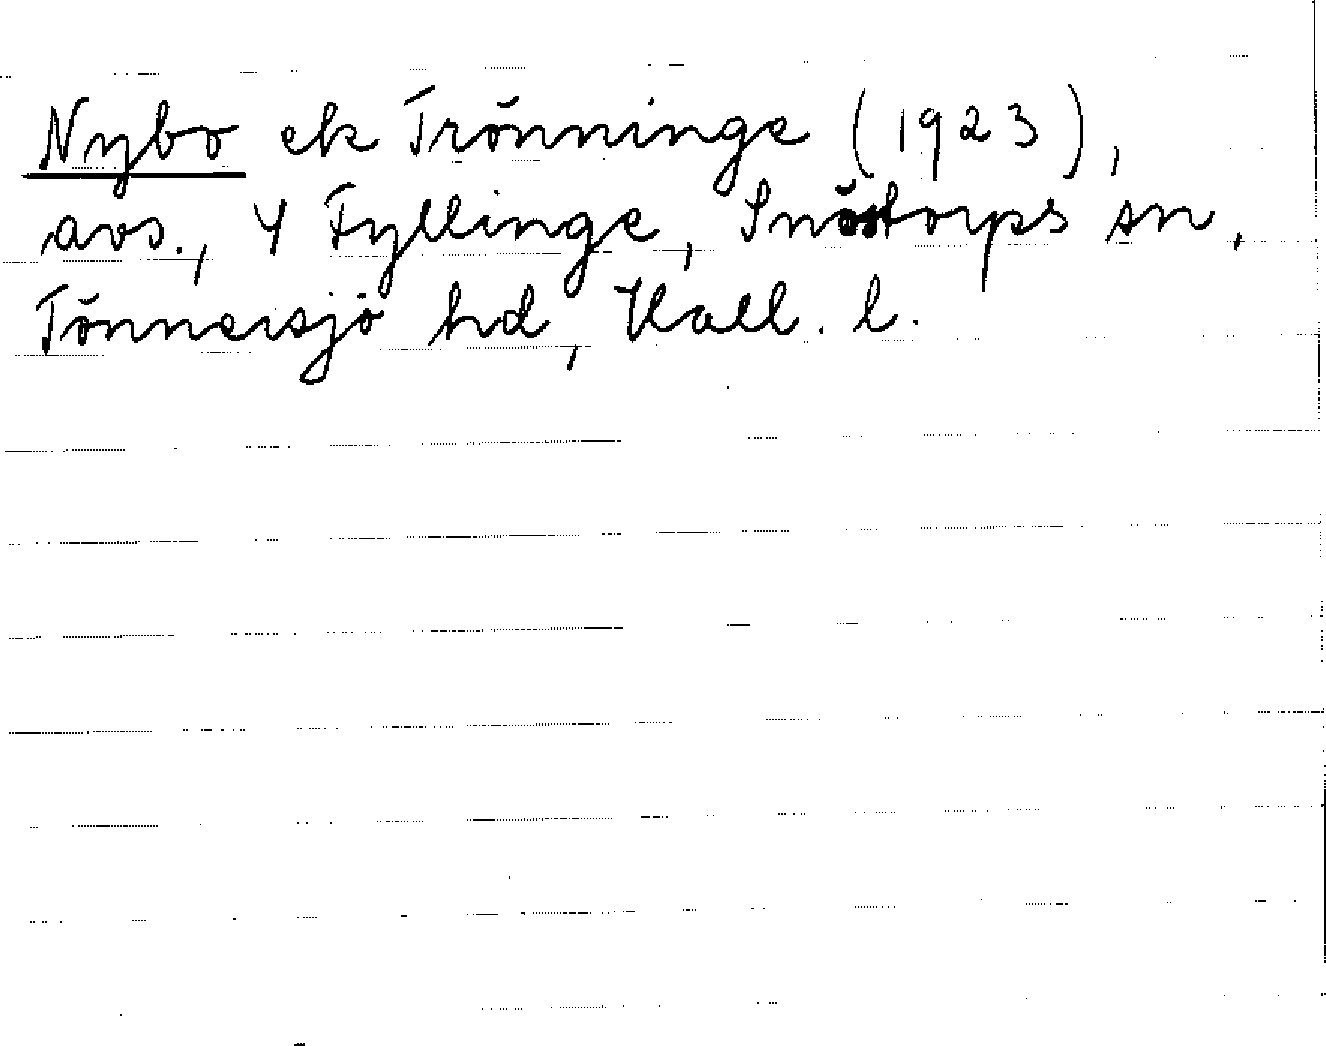 Nybo ek Trönninge (1923),
avs., 4 Fyllinge, Snöstorps sn,
Tönnersjö hd, Hall. l.